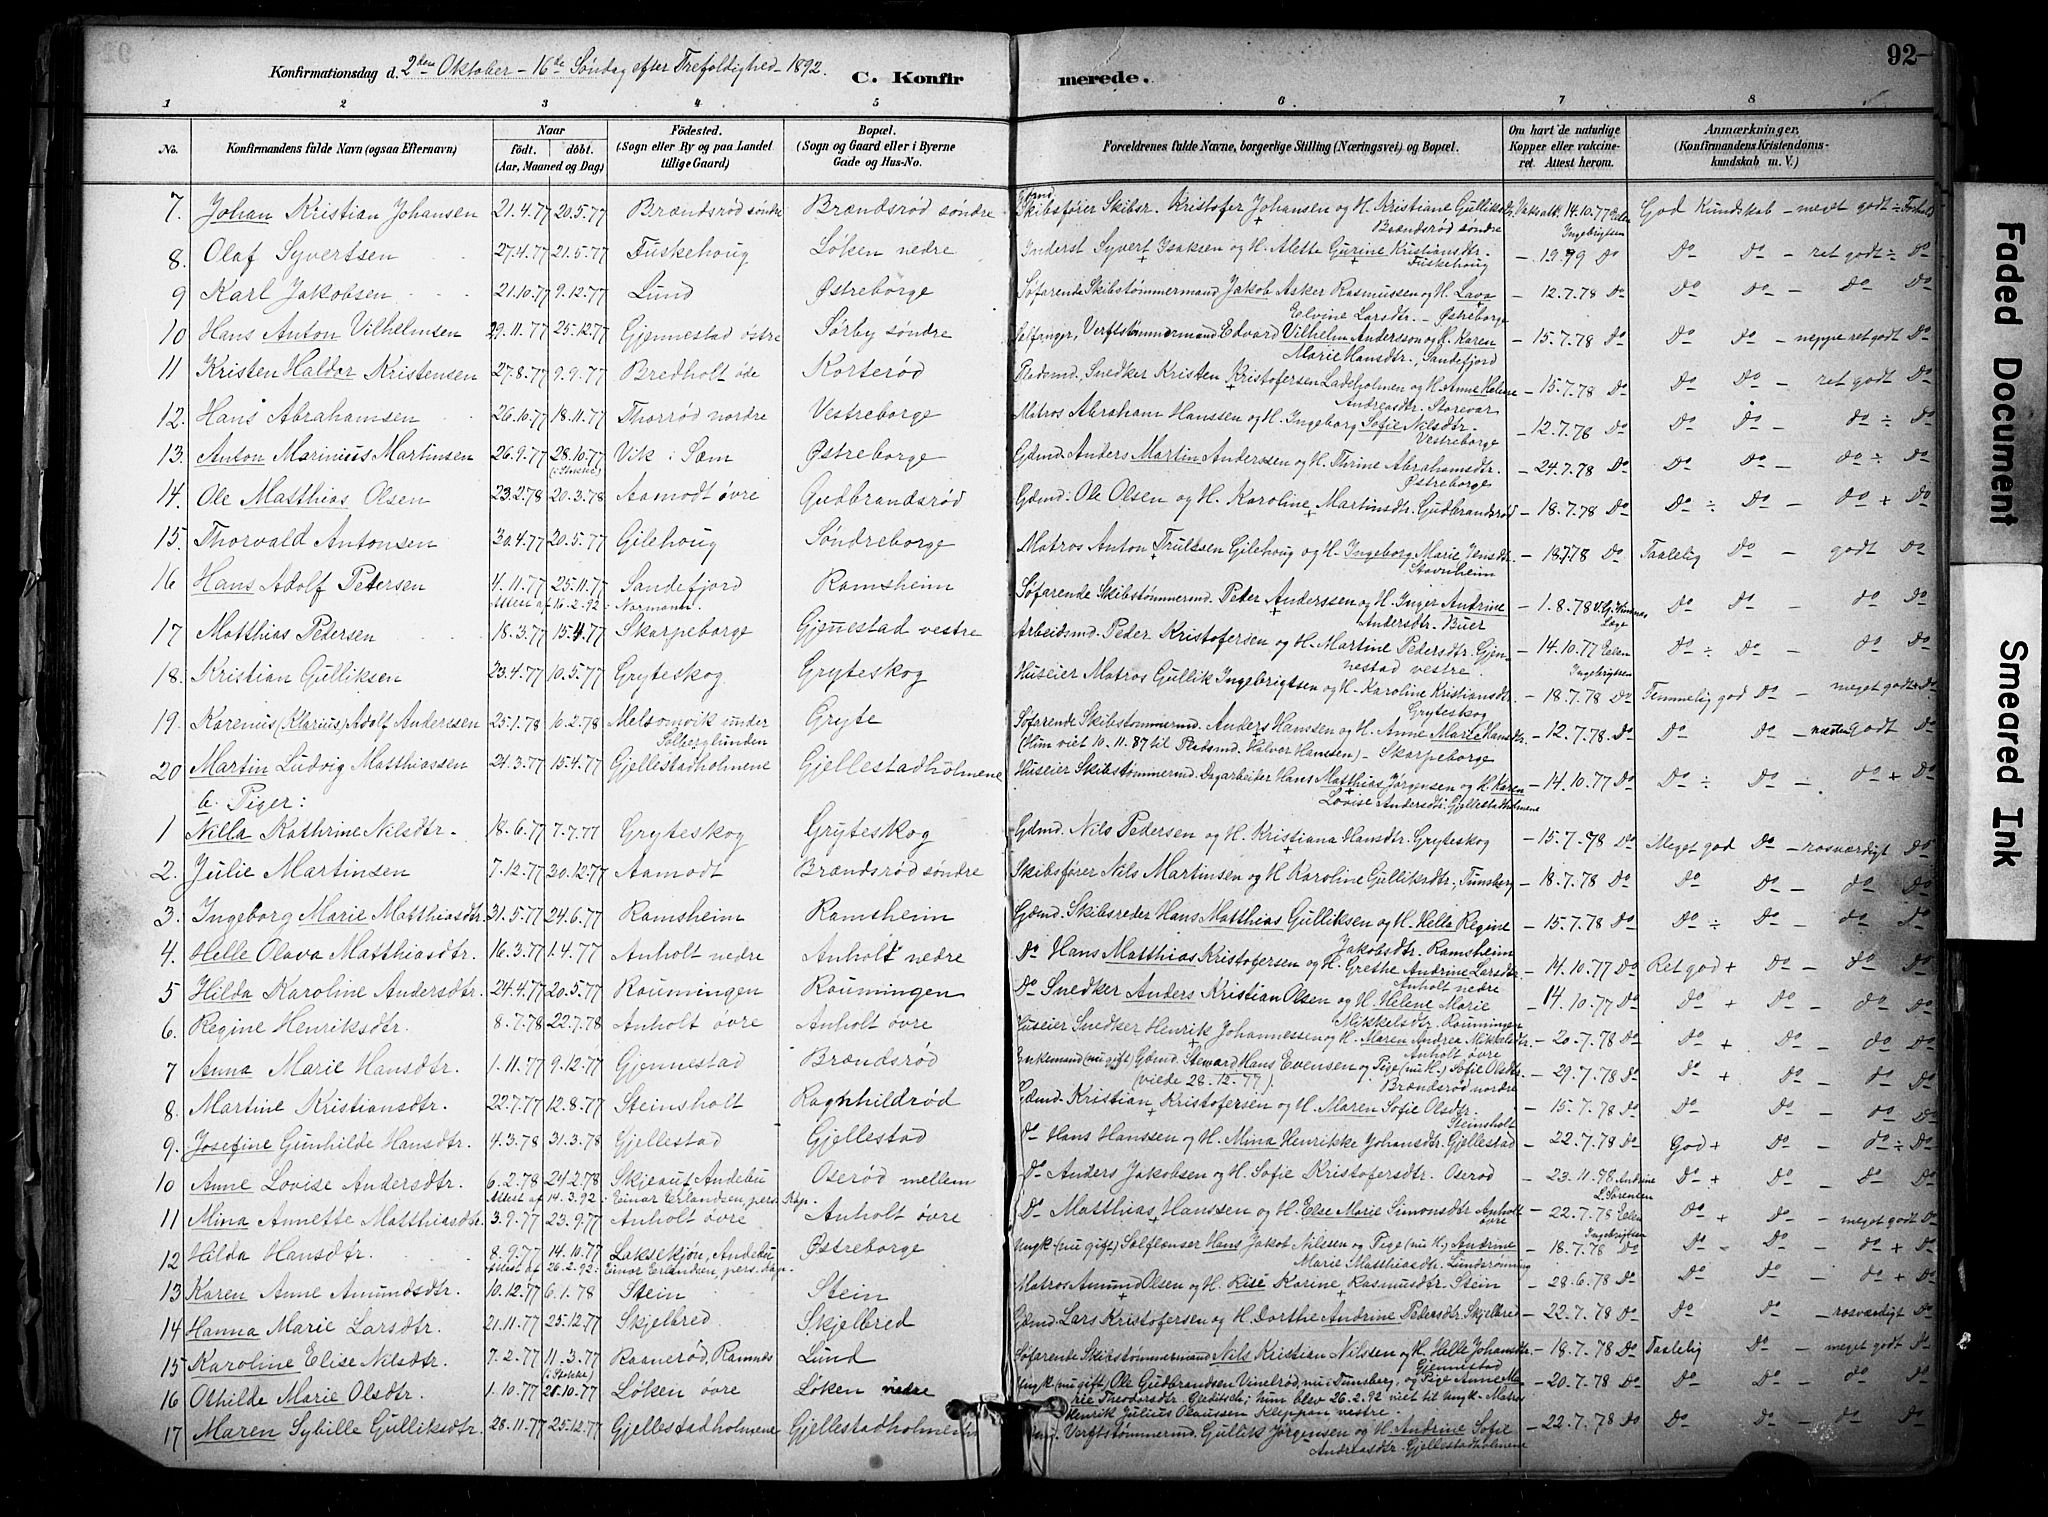 92
Konfirmationsdag d. 2den Oktober - 16de Søndag efter Trefoldighed - 1892. C. Konfir merede.
1 2 3 4 5 6 7 8
No. Konfirmandens fulde Navn (ogsaa Efternavn) Naar født. døbt. (Aar, Maaned og Dag) Fødested. (Sogn eller By og paa Landet tillige Gaard) Bopæl. (Sogn og Gaard eller i Byerne Gade og Hus-No. Forældrenes fulde Navne, borgerlige Stilling (Næringsvei) og Bopæl. Om havt de naturlige Kopper eller vakcineret. Attest herom. Anmærkninger, (Konfirmandens Kristendomskundskab m. V.)
7. Johan Kristian Johansen 21.4.77 20.5.77 Brændsrød søndre Brændsrød søndre Skibsfører Skibsr. Kristofer Johansen og H. Kristiane Gulliksdtr. Brændsrød søndre Vaks.att. 14.10.77 Eelen Ingebrigtsen God Kundskab - meget godt ÷
8. Olaf Syvertsen 27.4.77 21.5.77 Fuskehoug Løken nedre Inderst Syvert Isaksen og H. Alette Gurine Kristiansdtr. Fuskehoug Do Do Do - ret godt ÷ Do
9 Karl Jakobsen 21.10.77 9.12.77 Lund Østreborge Søfarende Skibstømmermand Jakob Asker Rasmussen og H. Lava Elvine Larsdtr. - Østreborge - 12.7.78 Do Do Do - Do Do
10 Hans Anton Vilhelmsen 29.11.77 25.12.77 Gjennestad østre Sørby søndre Selfanger, Verftstømmermand Edvard Vilhelm Andersson og H. Karen Marie Hansdtr., Sandefjord - 15.7.78 Do Do Do - neppe ret godt Do
11 Kristen Haldor Kristensen 27.8.77 9.9.77 Bredholt øde Korterød Pladsmd., Snedker Kristen Kristofersen Ladeholmen og H. Anne Helene Andreasdtr. Storevar - 15.7.78 Do Do Do - ret godt Do
12. Hans Abrahamsen 26.10.77 18.11.77 Thorrød nordre Vestreborge Matros Abraham Hanssen og H. Ingeborg Sofie Nilsdtr. Vestreborge - 12.7.78 Do Do Do - do ÷ Do
13. Anton Marinius Martinsen 26.9.77 28.10.77 (i Stokke) Vik i Sæm Østreborge Gdmd. Anders Martin Anderssen og H. Thrine Abrahamsdtr. Østreborge - 24.7.78 Do Do Do - do ÷ Do
14. Ole Matthias Olsen 23.2.78 20.3.78 Aamodt øvre Gudbrandsrød Gdmd. Ole Olsen og H. Karoline Martinsdtr. Gudbrandsrød - 18.7.78 Do Do ÷ Do - do + Do
15. Thorvald Antonsen 30.4.77 20.5.77 Gilehoug Søndreborge Matros Anton Trulssen Gilehoug og H. Ingeborg Marie Jensdtr. Stavnheim - 18.7.78 Do Taalelig Do - godt Do
16 Hans Adolf Petersen 4.11.77 25.11.77 Sandefjord Ramsheim Søfarende Skibstømmermd. Peder Anderssen og H. Inger Andrine Andersdtr. Buer - 1.8.78 Læge Do Do - do Do
Attest af 16.2.92: Normann.
17 Matthias Pedersen 18.3.77 15.4.77 Skarpeborge Gjennestad vestre Arbeidsmd. Peder Kristofersen og H. Martine Pedersdtr. Gjennestad vestre - 14.10.77 Eelen Ingebrigtsen Do ÷ Do - do Do
18. Kristian Gulliksen 23.4.77 10.5.77 Gryteskog Gryteskog Huseier Matros Gullik Ingebrigtsen og H. Karoline Kristiansdtr. Gryteskog - 18.7.78 Do Temmelig god Do - meget godt + Do
19. Karenius (Klarius) Adolf Anderssen 25.1.78 16.2.78 Melsomvik under Solberglunden Gryte Søfarende Skibstømmermd. Anders Hanssen og H. Anne Marie Hansdtr. (Hun viet 10.11.87 til Pladsmd. Halvor Hanssen) - Skarpeborge - 12.7.78 Do Do Do - næsten godt Do
20 Martin Ludvig Matthiassen 24.3.77 15.4.77 Gjellestadholmene Gjellestadholmene Huseier Skibstømmermd. Dagarbeider Hans Matthias Jørgensen og H. Karen Lovise Andersdtr. Gjellestadholmene - 14.10.77 Do Do ÷ Do - do + Do
b. Piger:
1 Nilla Kathrine Nilsdtr. 18.6.77 7.7.77 Gryteskog Gryteskog Gdmd. Nils Pedersen og H. Kristiana Hansdtr. Gryteskog - 15.7.78 Do Meget god Do - rosværdigt Do
2. Julie Martinsen 7.12.77 30.12.77 Aamodt Brændsrød søndre Skibsfører Nils Martinsen og H. Karoline Gulliksdtr., Tunsberg - 18.7.78 Do Do Do - do Do
3. Ingeborg Marie Matthiasdtr. 31.5.77 24.6.77 Ramsheim Ramsheim Gdmd. Skibsreder Hans Matthias Gulliksen og H. Hella Regine Jakobsdtr. Ramsheim - 15.7.78 Do Do ÷ Do - do Do
4. Helle Olava Matthiasdtr. 16.3.77 1.4.77 Anholt nedre Anholt nedre Do Hans Matthias Kristofersen og H. Grethe Andrine Larsdtr. Anholt nedre - 14.10.77 Do Ret god + Do - do Do
5 Hilda Karoline Andersdtr. 24.4.77 20.5.77 Roumingen Roumingen Do Snedker Anders Kristian Olsen og H. Helene Marie Mikkelsdtr. Roumingen 14.10.77 Do Do + Do - do Do
6. Regine Henriksdtr. 8.7.78 22.7.78 Anholt øvre Anholt øvre Huseier Snedker Henrik Johannessen og H. Maren Andrea Mikkelsdtr. Anholt øvre - 20.7.78 Do Do + Do - do Do
7 Anna Marie Hansdtr. 1.11.77 9.12.77 Gjennestad Brændsrød Enkemand (nu gift) Gdmd. Steward Hans Evensen og Pige (nu H.) Sofie Olsdtr. (viede 28.12.77). Brændsrød nordre - 29.7.78 Do Do + Do - do Do
8. Martine Kristiansdtr. 22.7.77 12.8.77 Steinsholt Ragnhildrød Gdmd. Kristian Kristofersen og H. Maren Sofie Olsdtr. Steinsholt - 15.7.78 Do Do Do - do Do
9. Josefine Gunhilde Hansdtr. 4.3.78 31.3.78 Gjellestad Gjellestad Do Hans Hanssen og H. Mina Henrikke Johansdtr. Gjellestad - 22.7.78 Do God + Do - do ÷ Do
10 Anne Lovise Andersdtr. 6.2.78 24.2.78 Skjeaut Andebu Oserød mellem Do Anders Jakobsen og H. Sofie Kristofersdtr. Oserød - 23.11.78 Andrine L. Sørensen Do + Do - do Do
Attest af 14.3.92: Einar Erlandsen, pers. Kap.
11 Mina Annette Matthiasdtr. 3.9.77 23.9.77 Anholt øvre Anholt øvre Do Matthias Hanssen og H. Else Marie Simonsdtr. Anholt øvre - 22.7.78 Eelen Ingebrigtsen Do + Do - meget godt Do
12 Hilda Hansdtr. 8.9.77 14.10.77 Laksekjøn, Andebu Østreborge Ungk (nu gift) Selfanger Hans Jakob Nilsen og Pige (nu H.) Andrine Marie Matthiasdtr. Lundsrønning - 18.7.78 Do Do - Do - do + Do
Attest af 26.2.92: Einar Erlandsen, pers. Kap.
13 Karen Anne Amundsdtr. 10.12.77 6.1.78 Stein Stein Matros Amund Olsen og H. Risé Karine Rasmusdtr. Stein - 28.6.78 Do Do Do - do + Do
14 Hanna Marie Larsdtr. 21.11.77 25.12.77 Skjelbred Skjelbred Gdmd. Lars Kristofersen og H. Dorthe Andrine Pedersdtr. Skjelbred - 22.7.78 Do Do Do - rosværdigt Do
15 Karoline Elise Nilsdtr. 7.2.77 11.3.77 (i Stokke) Raanerød, Ramnes Lund Søfarende Skibstømmermand Nils Kristian Nilssen og H. Helle Johansdtr. Gjennestad - 18.7.78 Do Taalelig Do - meget godt Do
16 Othilde Marie Olsdtr. 1.10.77 28.10.77 Løken øvre Løken nedre Ungk (nu gift), Ole Gudbrandsen Vinelrød, nu Tunsberg, og Pige Anne Marie Theodorsdtr. Gleditsch; hun blev 26.2.92 viet til Ungk. Matros Henrik Julius Olaussen Kleppan vestre. - 20.7.78 Do Do Do - do Do
17 Maren Sybille Gulliksdtr. 28.11.77 25.12.77 Gjellestadholmene Gjellestadholmene Verftstømmermd. Gullik Jørgensen og H. Andrine Sofie Andreasdtr. Gjellestadholmene - 22.7.78 Do Do Do - do Do
Faded Document
Smeared Ink